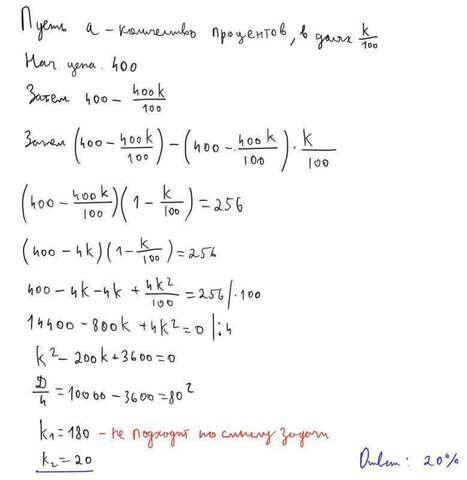 Пусть a - количество процентов, в долях k/100
Нач. цена. 400
Затем 400 - 400k/100
Затем (400 - 400k/100) - (400 - 400k/100) · k/100
(400 - 400k/100)(1 - k/100) = 256
(400 - 4k)(1 - k/100) = 256
400 - 4k - 4k + 4k²/100 = 256 |·100
14400 - 800k + 4k² = 0 |:4
k² - 200k + 3600 = 0
D/4 = 10000 - 3600 = 80²
k₁ = 180 - не подходит по смыслу задачи
k₂ = 20 Ответ: 20%